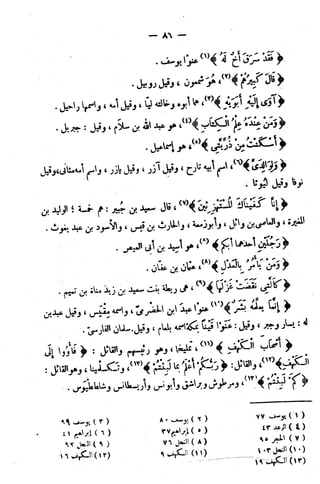 — ٨٦ —
﴿ فَقَدْ سَرَقَ أَخٌ لَهُ ﴾(١) عنوا يوسف .
﴿ قَالَ كَبِيرُهُمْ ﴾(٢)، هو شمعون ، وقيل روبيل .
﴿ آوَى إِلَيْهِ أَبَوَيْهِ ﴾(٣)، هما أبوه وخالته ليا ، وقيل أمه ، واسمها راحيل .
﴿ وَمَنْ عِنْدَهُ عِلْمُ الْكِتَابِ ﴾(٤)، هو عبد الله بن سلام ، وقيل : جبريل .
﴿ أَسْكَنْتُ مِنْ ذُرِّيَّتِي ﴾(٥)، هو إسماعيل .
﴿ وَلِوَالِدَيَّ ﴾(٦)، اسم أبيه تارح ، وقيل آزر ، وقيل يازر ، واسم أمه مثانى ، وقيل
نوفا وقيل ليوثا .
﴿ إِنَّا كَفَيْنَاكَ الْمُسْتَهْزِئِينَ ﴾(٧)، قال سعيد بن جبير : هم خمسة ؛ الوليد بن
المغيرة ، والعاصى بن وائل ، وأبو زمعة ، والحارث بن قيس ، والأسود بن عبد يغوث .
﴿ رَجُلَيْنِ أَحَدُهُمَا أَبْكَمُ ﴾(٨)، هو أسيد بن أبى العيص .
﴿ وَمَنْ يَأْمُرُ بِالْعَدْلِ ﴾(٨)، عثمان بن عفّان .
﴿ كَالَّتِي نَقَضَتْ غَزْلَهَا ﴾(٩)، هى ريطة بنت سعيد بن زيد مناة بن تميم .
﴿ إِنَّمَا يُعَلِّمُهُ بَشَرٌ ﴾(١٠) عنوا عبد ابن الحضرمىّ ، واسمه مقيس ، وقيل عبدين
له : يسار وجبر ، وقيل : عنوا قيناً بمكة اسمه بلعام ، وقيل . سلمان الفارسىّ .
﴿ أَصْحَابَ الْكَهْفِ ﴾(١١)، تمليخا ، وهو رئيسهم والقائل : ﴿ فَأْوُوا إِلَى
الْكَهْفِ ﴾(١٢)، والقائل : ﴿ رَبُّكُمْ أَعْلَمُ بِمَا لَبِثْتُمْ ﴾(١٣)، وتكسلمينا ، وهو القائل :
﴿ كَمْ لَبِثْتُمْ ﴾(١٣)، ومرطوش وبراشق وأيونس وأريسطانس وشلططيوس .
(١) يوسف ٧٧ (٢) يوسف ٨٠ (٣) يوسف ٩٩
(٤) الرعد ٤٣ (٥) إبراهيم ٣٧ (٦) إبراهيم ٤١
(٧) الحجر ٩٥ (٨) النحل ٧٦ (٩) النحل ٩٢
(١٠) النحل ١٠٣ (١١) الكهف ٩ (١٢) الكهف ١٦
(١٣) الكهف ١٩